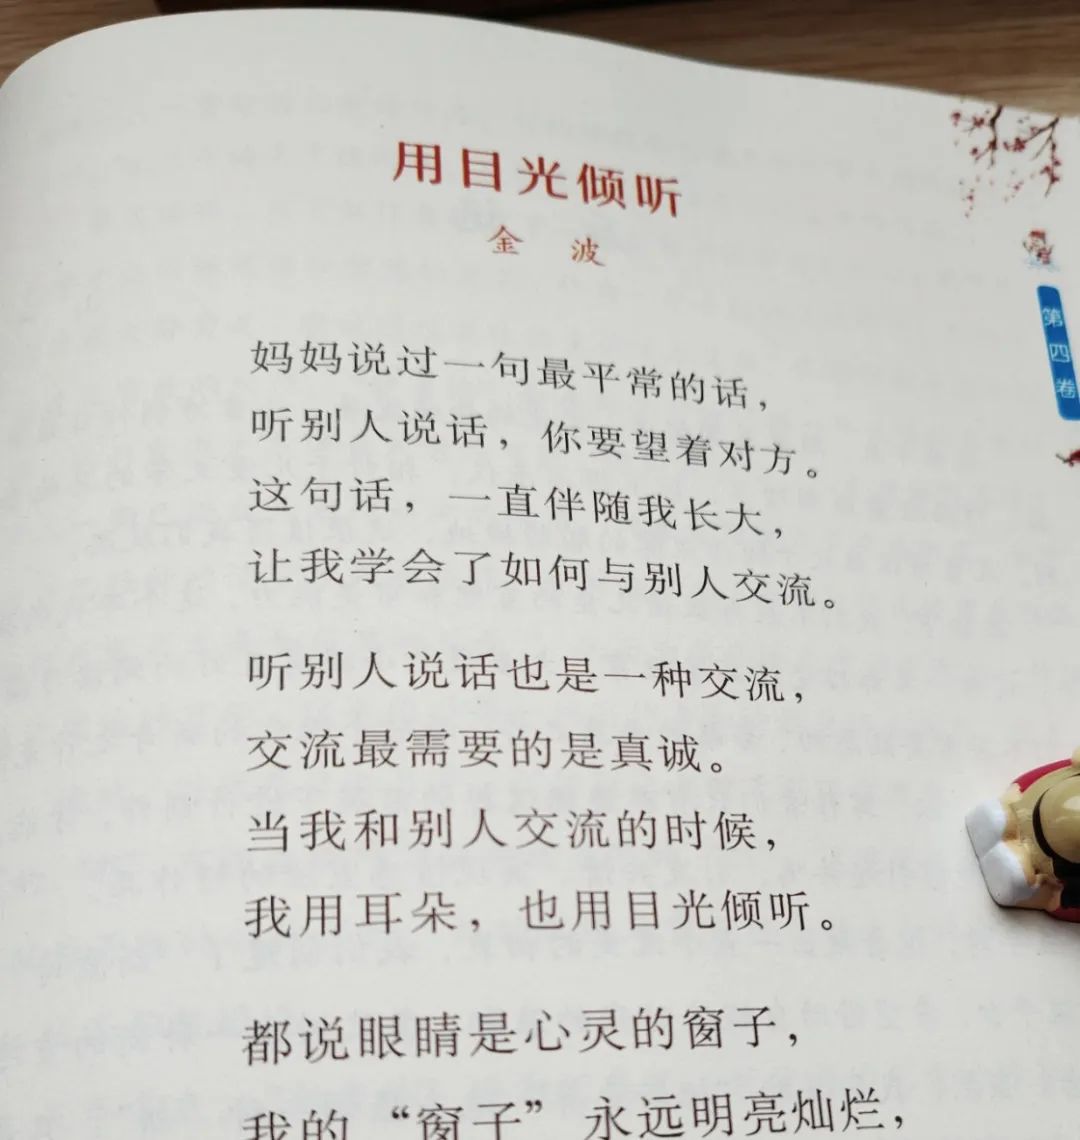 用目光倾听
金 波
第四卷
妈妈说过一句最平常的话，
听别人说话，你要望着对方。
这句话，一直伴随我长大，
让我学会了如何与别人交流。
听别人说话也是一种交流，
交流最需要的是真诚。
当我和别人交流的时候，
我用耳朵，也用目光倾听。
都说眼睛是心灵的窗子，
我的“窗子”永远明亮灿烂，